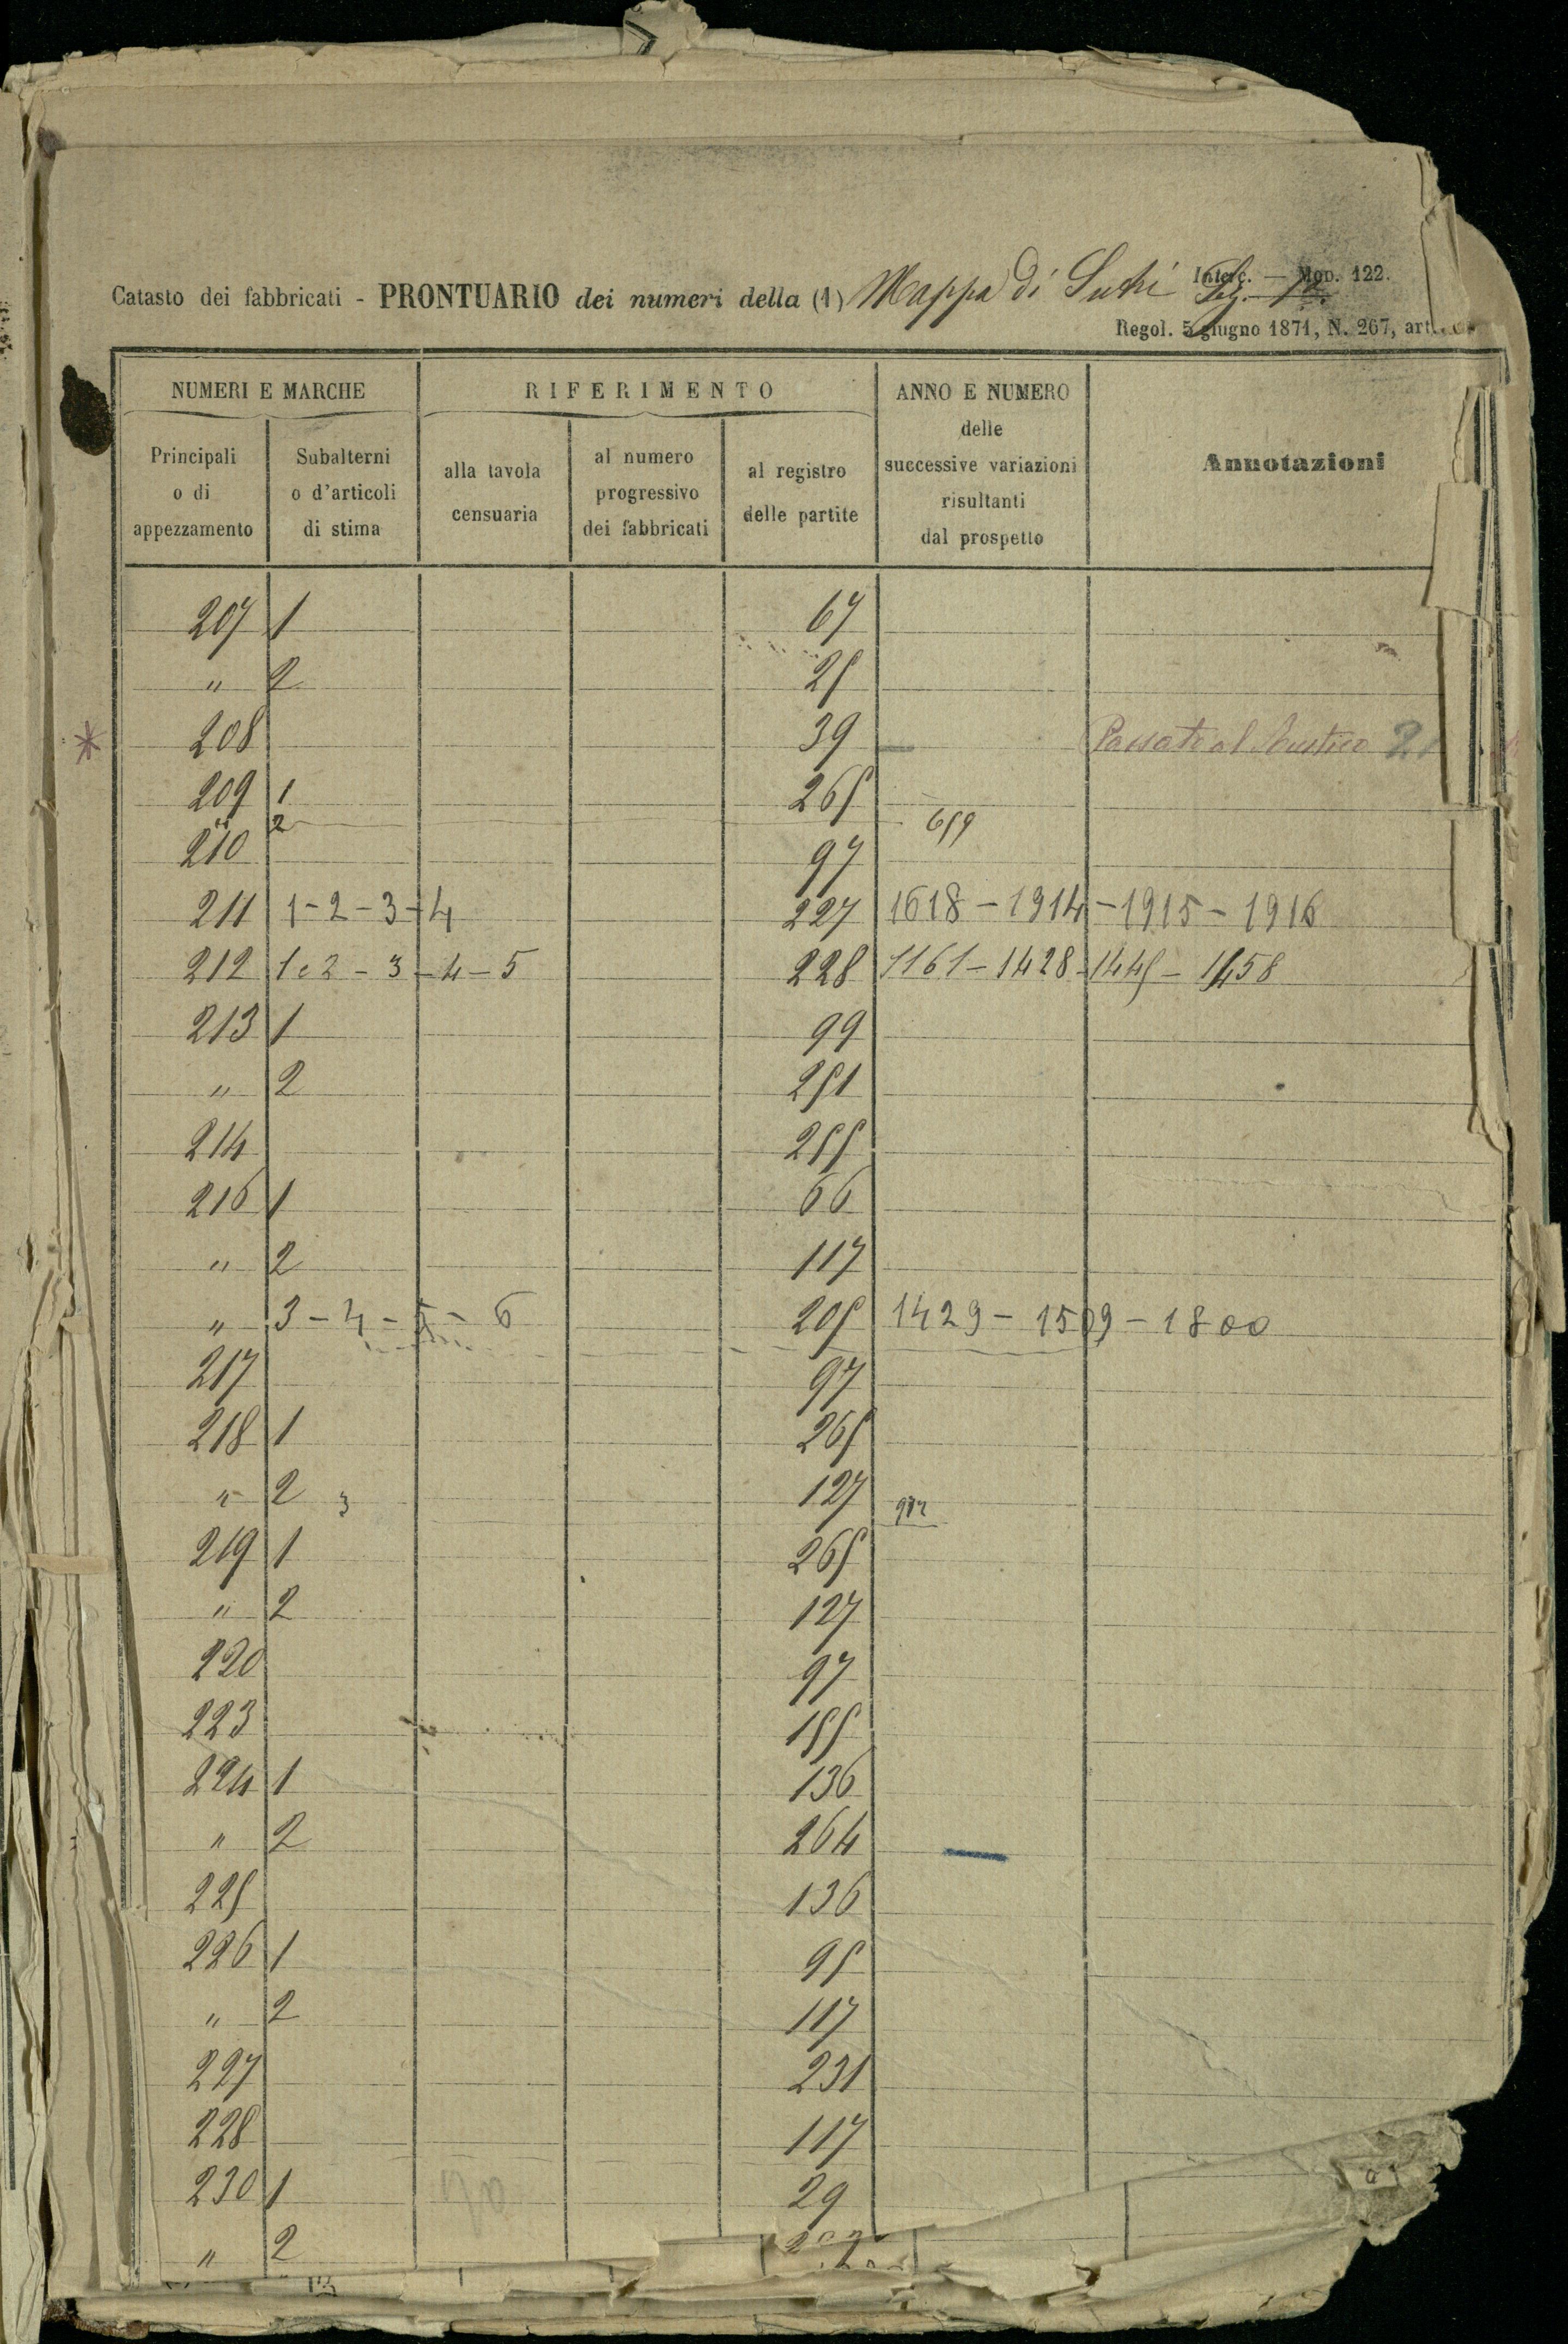 Interc. — Mod. 122.
Catasto dei fabbricati - PRONTUARIO dei numeri della (1) Mappa di Sutri
Regol. 5 giugno 1871, N. 267, art.
NUMERI E MARCHE
RIFERIMENTO
ANNO E NUMERO delle successive variazioni risultanti dal prospetto
Annotazioni
Principali o di appezzamento
Subalterni o d'articoli di stima
alla tavola censuaria
al numero progressivo dei fabbricati
al registro delle partite
207 1 67
" 2 25
* 208 39 Passato al Rustico
209 1 265
" 2 659
210 97
211 1-2-3-4 227 1618-1914-1915-1916
212 1e2-3-4-5 228 1161-1428-1445-1458
213 1 99
" 2 251
214 255
216 1 66
" 2 117
" 3-4-5-6 205 1429-1509-1800
217 97
218 1 265
" 2 3 127
219 1 265
" 2 127
220 97
223 155
224 1 136
" 2 264
225 136
226 1 95
" 2 117
227 231
228 117
230 1 29
" 2